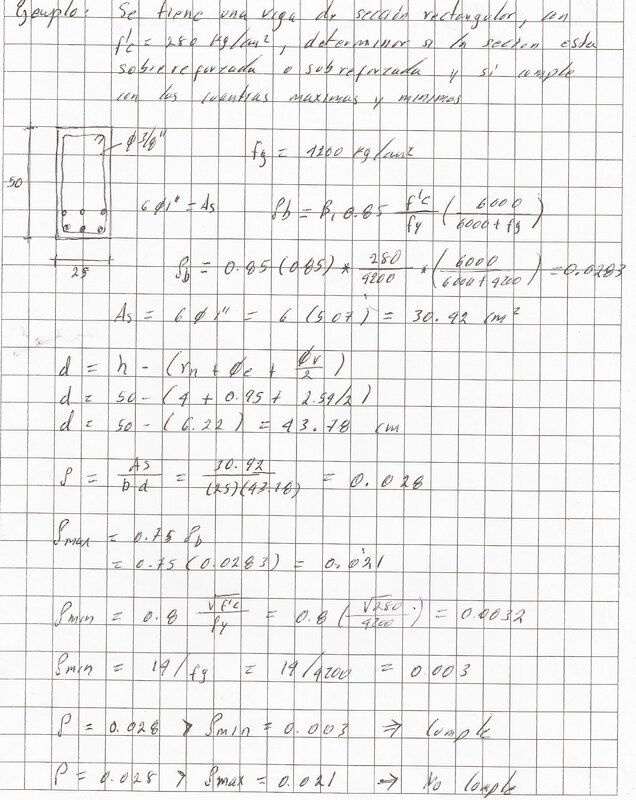 Ejemplo: Se tiene una viga de sección rectangular, con
f'c = 280 kg/cm², determinar si la secion esta
sobrereforzada o subreforzada y si cumple
con las cuantias maximas y minimas
φ 3/8"
fy = 4200 kg/cm²
50
6 φ 1" = As
ρb = β1 0.85 f'c/fy (6000/(6000 + fy))
25
ρb = 0.85 (0.85) * 280/4200 * (6000/(6000 + 4200)) = 0.0283
As = 6 φ 1" = 6 (5.07) = 30.42 cm²
d = h - (rn + φc + φv/2)
d = 50 - (4 + 0.95 + 2.54/2)
d = 50 - (6.22) = 43.78 cm
ρ = As/(b d) = 30.42/((25)(43.78)) = 0.028
ρmax = 0.75 ρb
= 0.75 (0.0283) = 0.021
ρmin = 0.8 √f'c/fy = 0.8 (√280/4200) = 0.0032
ρmin = 14/fy = 14/4200 = 0.003
ρ = 0.028 > ρmin = 0.003 ⇒ Cumple
ρ = 0.028 > ρmax = 0.021 → No Cumple